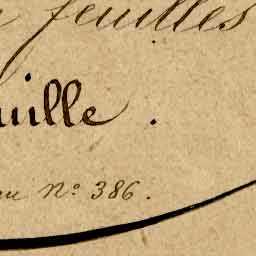 feuilles
uille.
au Nº 386.